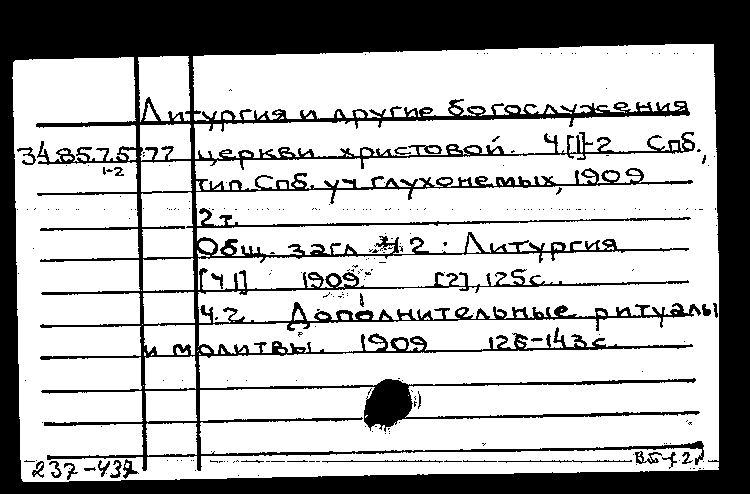 Литургия и другие богослужения
34.85.7.5 77 церкви христовой. Ч.[1]-2 Спб.,
1-2
тип. Спб. уч глухонемых, 1909
2 т.
Общ. загл Ч 2 : Литургия
[Ч.1] 1909 [2], 125 с.
Ч.2. Дополнительные ритуалы
и молитвы. 1909 126-143 с.
237-437